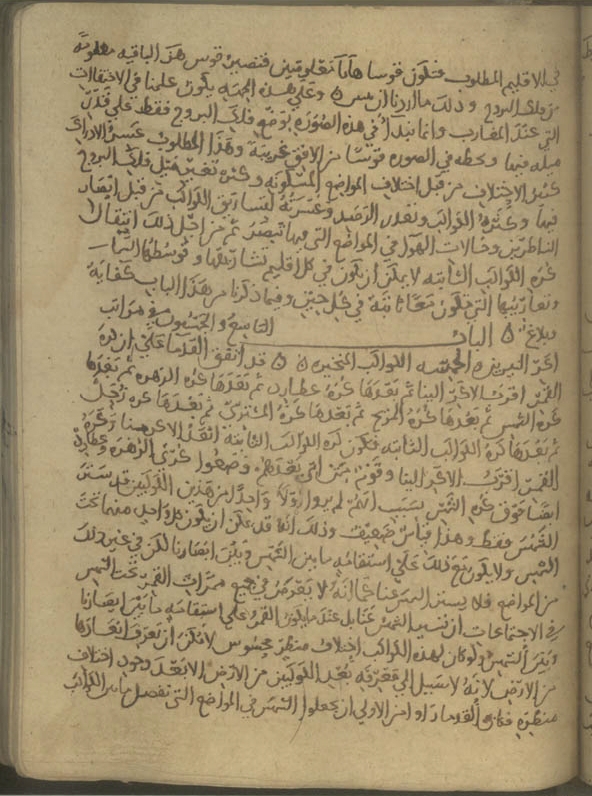 في الاقليم المطلوب فتكون قوسا معلومتين فتصير قوس الباقيه معلومة
من فلك البروج وذلك ما اردنا ان نبين وعلى هذه الجهه يكون علمنا في الاختفاات
التي عند المغارب وانما نبدل في هذه الصوره بوضع فلك البروج فقط على قدر
ميله فيها ونخطه في الصوره قوسا من الافق غربية وهذا المطلوب عسر الادراك
كثير الاختلاف من قبل اختلاف المواضع المسكونه وكثره تغير ميل فلك البروج
فيها وكثره الكواكب وبقدر الرصد وعسرته ليس من قبل ابصار
الناظرين وحالات الهوا في المواضع التي فيها تبصر ثم من اجل ذلك انتقال
كره الكواكب الثابته لا يمكن ان يكون في كل اقليم تشاريقها وتوسطها السما
وتغاريبها التي تكون ثابته في كل حين وفيما ذكرنا من هذا الباب كفايه
وبلاغ الباب التاسع والخمسون في مراتب
اكر النيرين والخمسه الكواكب المتحيره قد اتفق القدما على ان كره
القمر اقرب الاكر الينا ثم بعدها كره عطارد ثم بعدها كره الزهره ثم بعدها
كره الشمس ثم بعدها كره المريخ ثم بعدها كره المشتري ثم بعدها كره زحل
ثم بعدها كره الكواكب الثابته فتكون كره الكواكب الثابته ابعد الاكر منا وكره
القمر اقرب الاكر الينا وقوم ممن اتى بعدهم وضعوا كرتي الزهره وعطارد
ايضا فوق كره الشمس بسبب انهم لم يروا ولا واحدا من هذين الكوكبين قد ستر
الشمس فقط وهذا قياس ضعيف وذلك انه قد يمكن ان يكون كل واحد منهما تحت
الشمس ولا يكون مع ذلك على استقامه ما بين الشمس وبين ابصارنا لكن في غير ذلك
من المواضع فلا يستر الشمس عنا كما انه لا يعرض في جميع ممرات القمر تحت الشمس
في الاجتماعات ان تستر الشمس عنا بل عندما يكون القمر على استقامه ما بين ابصارنا
وبين الشمس ولو كان لهذه الكواكب اختلاف منظر محسوس لامكن ان تعرف ابعادها
من الارض لانه لا سبيل الى معرفه بعد الكوكبين من الارض الا بعد وجود اختلاف
منظره فكان القدما راوا من الاولى ان يجعلوا الشمس في المواضع التي تفصل ما بين الكواكب